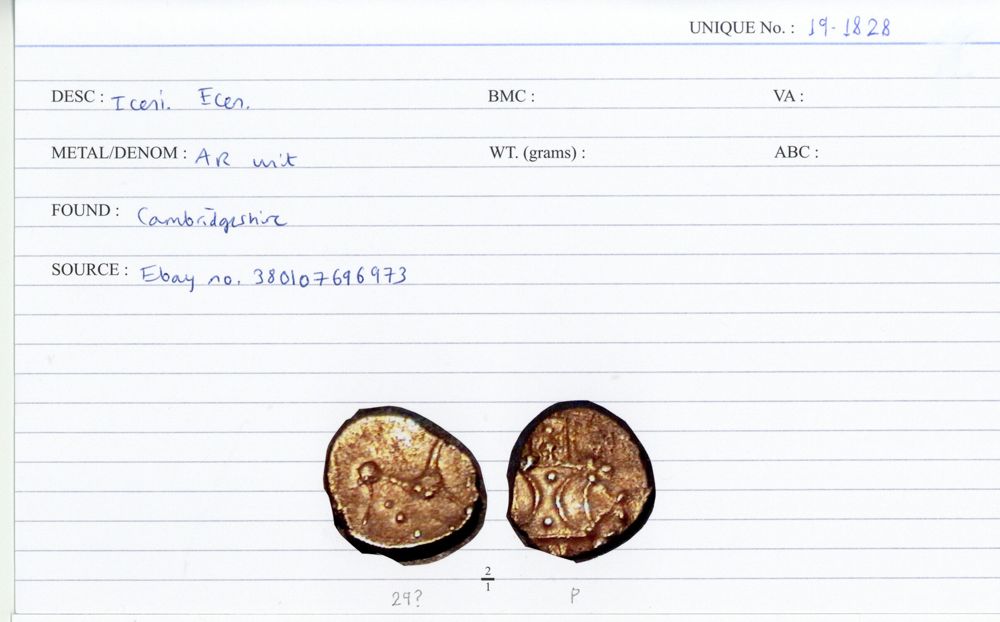 UNIQUE No. : 19-1828
DESC : Iceni. Ecen. BMC : VA :
METAL/DENOM : AR unit WT. (grams) : ABC :
FOUND : Cambridgeshire
SOURCE : Ebay no. 380107696973
2
1
29? P